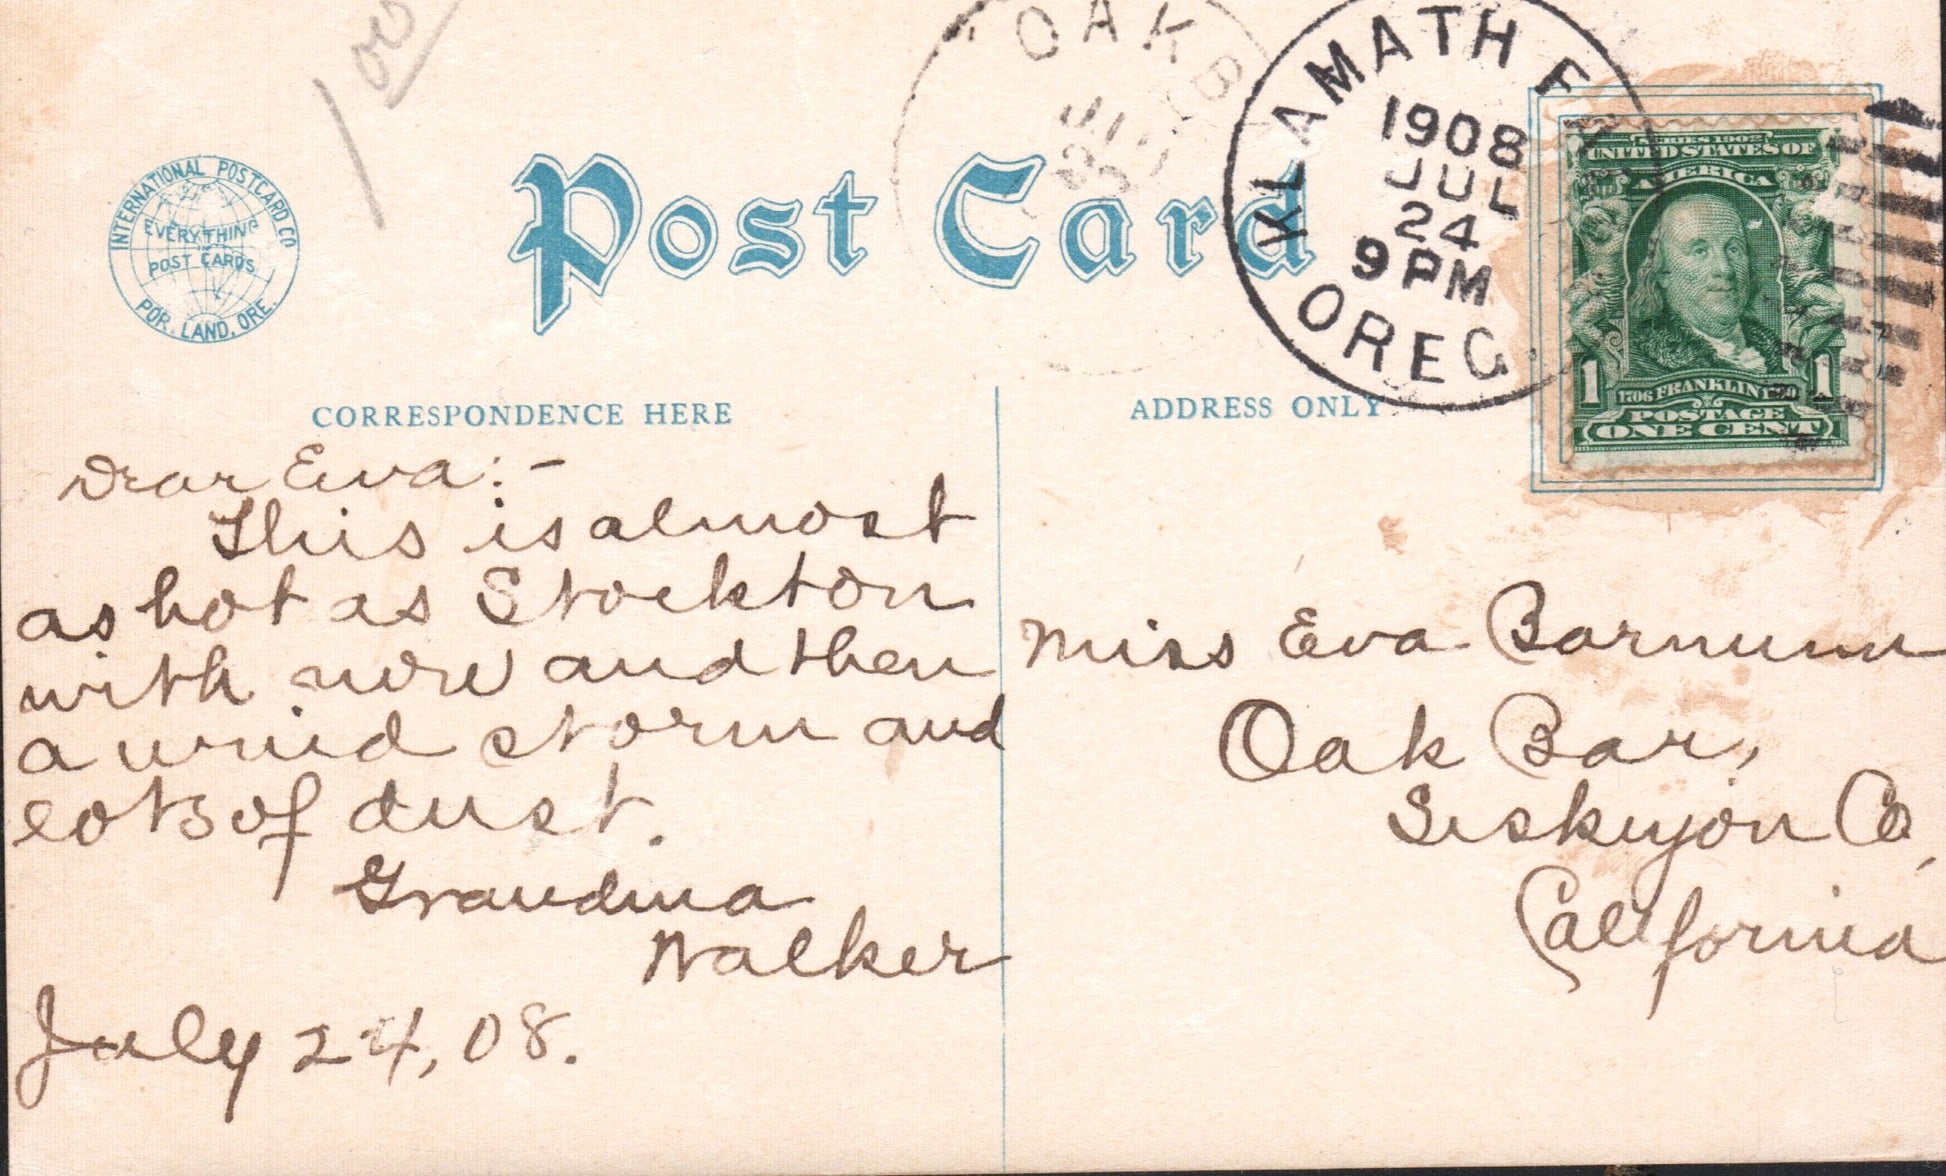 1 00
INTERNATIONAL POSTCARD CO
EVERYTHING
IN
POST CARDS
POR. LAND, ORE.
Post Card
OAK B
JUL
KLAMATH F
1908
JUL
24
9 PM
OREG.
SERIES 1902
UNITED STATES OF
AMERICA
1 1706 FRANKLIN 1790 1
POSTAGE
ONE CENT
CORRESPONDENCE HERE
ADDRESS ONLY
Dear Eva:-
This is almost
as hot as Stockton
with now and then
a wind storm and
lots of dust.
Grandma
Walker
July 24, 08.
Miss Eva Barnum
Oak Bar,
Siskiyou Co,
California